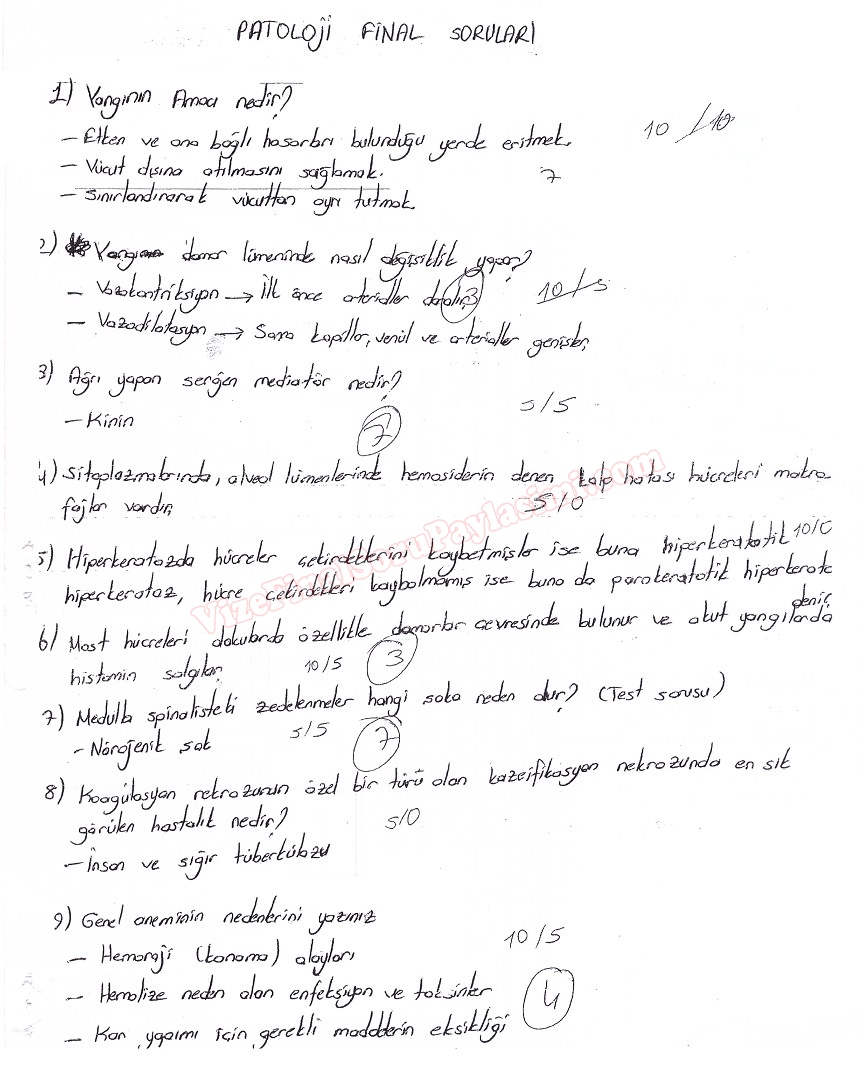 PATOLOJİ FİNAL SORULARI
1) Yangının Amacı nedir?
- Etken ve ona bağlı hasarları bulunduğu yerde eritmek.
10/10
- Vücut dışına atılmasını sağlamak.
7
- Sınırlandırarak vücuttan ayrı tutmak
2) Yangı damar lümeninde nasıl değişiklik yapar?
- Vazokontriksiyon → İlk önce arterioller daralır
3
10/5
- Vazodilatasyon → Sonra kapiller, venül ve arterioller genişler
3) Ağrı yapan serğen mediatör nedir?
5/5
- Kinin
7
4) Sitoplazmalarında, alveol lümenlerinde hemosiderin denen kalp hatası hücreleri makro
fajlar vardır
5/0
5) Hiperkeratozda hücreler çekirdeklerini kaybetmişler ise buna hiperkeratotik
10/0
hiperkeratoz, hücre çekirdekleri kaybolmamış ise buna da parakeratotik hiperkerato
denir
6) Mast hücreleri dokularda özellikle damarlar çevresinde bulunur ve akut yangılarda
histamin salgılar
10/5
3
7) Medulla spinalisteki zedelenmeler hangi şoka neden olur? (Test sorusu)
- Nörojenik şok
5/5
7
8) Koagülasyon nekrozunun özel bir türü olan kazeifikasyon nekrozunda en sık
görülen hastalık nedir?
5/0
- İnsan ve sığır tüberkülozu
9) Genel aneminin nedenlerini yazınız
10/5
- Hemoraji (kanama) olayları
- Hemolize neden olan enfeksiyon ve toksinler
4
- Kan yapımı için gerekli maddelerin eksikliği
VizeFinalSoruPaylasimi.com